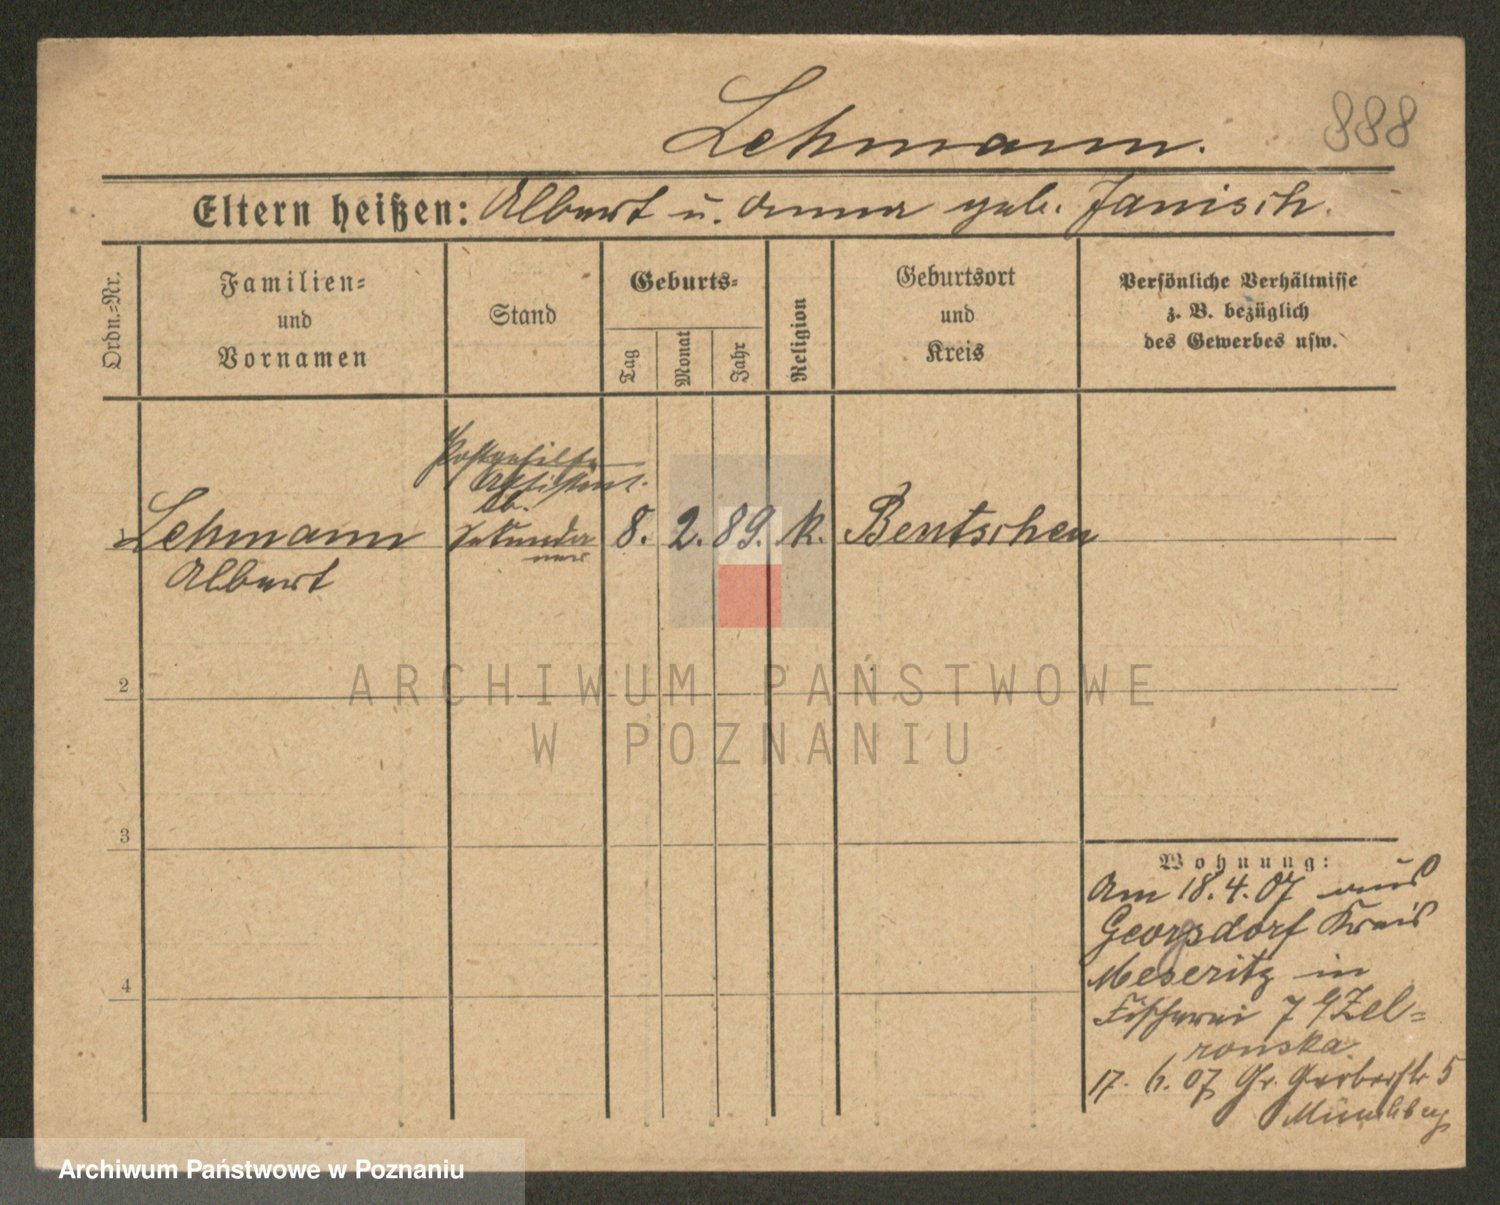 Lehmann.
888
Eltern heißen: Albert u. Anna geb. Janisch.
Ordn.-Nr.
Familien-
und
Vornamen
Stand
Geburts-
Tag
Monat
Jahr
Religion
Geburtsort
und
Kreis
Persönliche Verhältnisse
z. B. bezüglich
des Gewerbes usw.
Postgehilfe
Assistent.
1 Lehmann
Albert
8. 2. 89. k. Bentschen
2
3
4
Wohnung:
Am 18.4.07 aus
Georgsdorf Kreis
Meseritz in
Fischerei 7
17. 6. 07 Gr. Gerberstr 5
ARCHIWUM PAŃSTWOWE
W POZNANIU
Archiwum Państwowe w Poznaniu